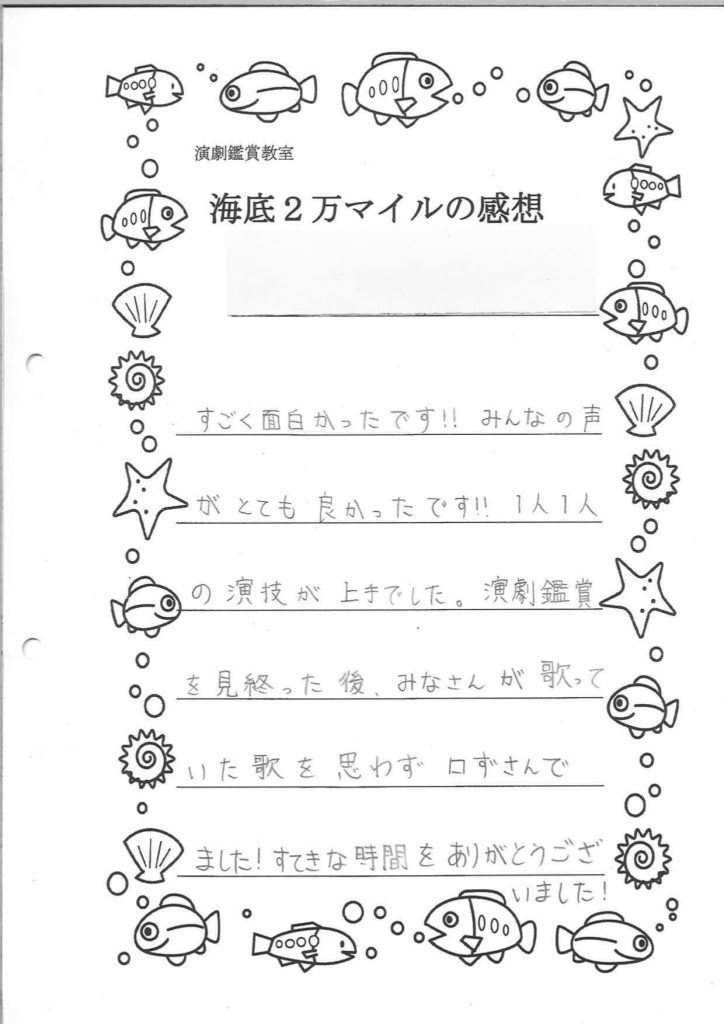 演劇鑑賞教室
海底２万マイルの感想
すごく面白かったです!! みんなの声
がとても良かったです!! 1人1人
の演技が上手でした。演劇鑑賞
を見終った後、みなさんが歌って
いた歌を思わず口ずさんで
ました!すてきな時間をありがとうござ
いました!